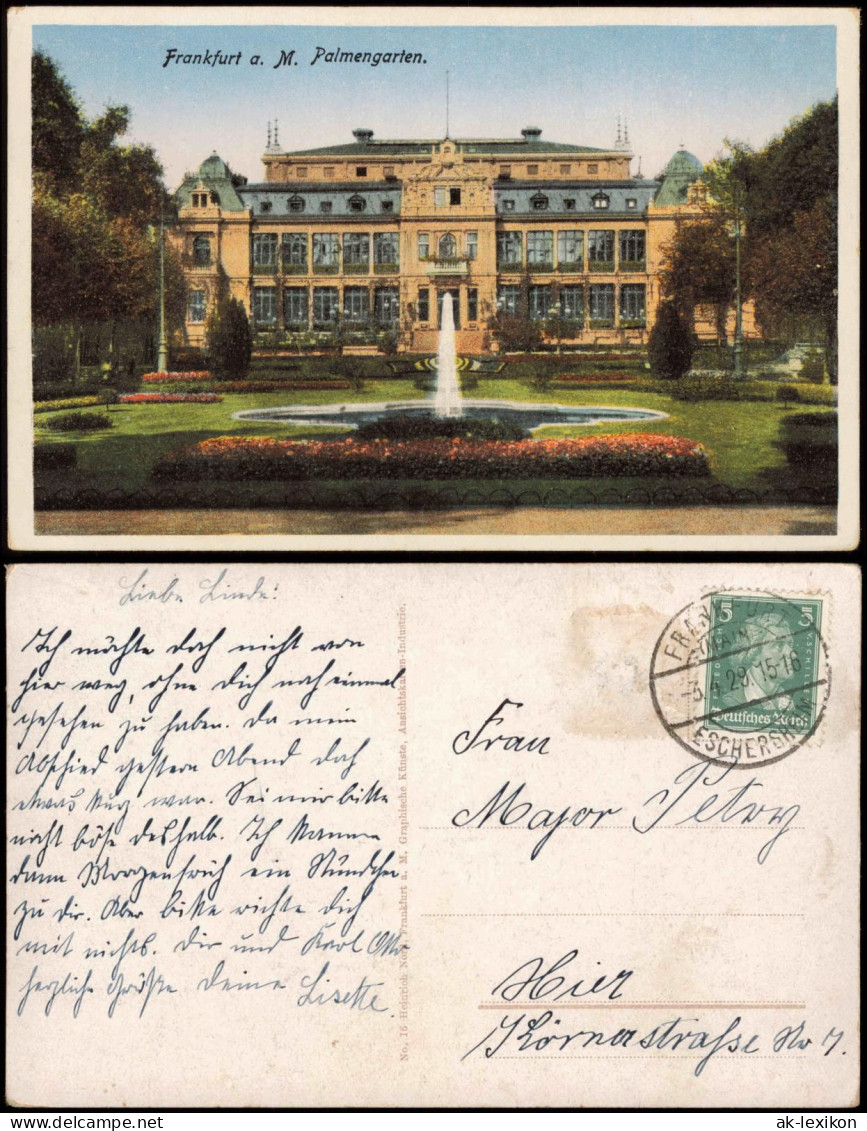 Frankfurt a. M. Palmengarten.
Liebe Linde!
Ich möchte doch nicht von
hier weg, ohne Dich noch einmal
gesehen zu haben. Da mein
Abschied gestern Abend doch
etwas kurz war. Sei mir bitte
nicht böse deshalb. Ich komme
dann Morgenfrüh ein Stündchen
zu Dir. Aber bitte richte Dich
mit nichts. Dir und Karl Otto
herzliche Grüße Deine Lisette.
No. 16 Heinrich Frankfurt a. M. Graphische Künste, Ansichtskarten-Industrie.
5 5
Deutsches Reich
FRANKFURT
(MAIN)
15-16
ESCHERSH
Frau
Major Petry
Hier
Körnerstraße No 7.
ak-lexikon